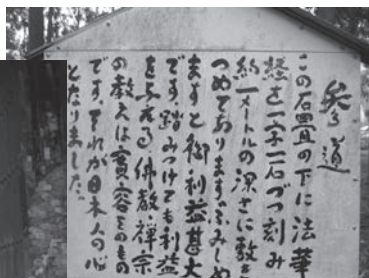 道
この石畳の下に法華
経を一字一石づつ刻み
約一メートルの深さに敷き
つめてあります。ふみしめ
ますと御利益甚大
です。踏みつけても利益
を与える佛教・禅宗
の教えは寛容そのもの
です。それが日本人の心
となりました。